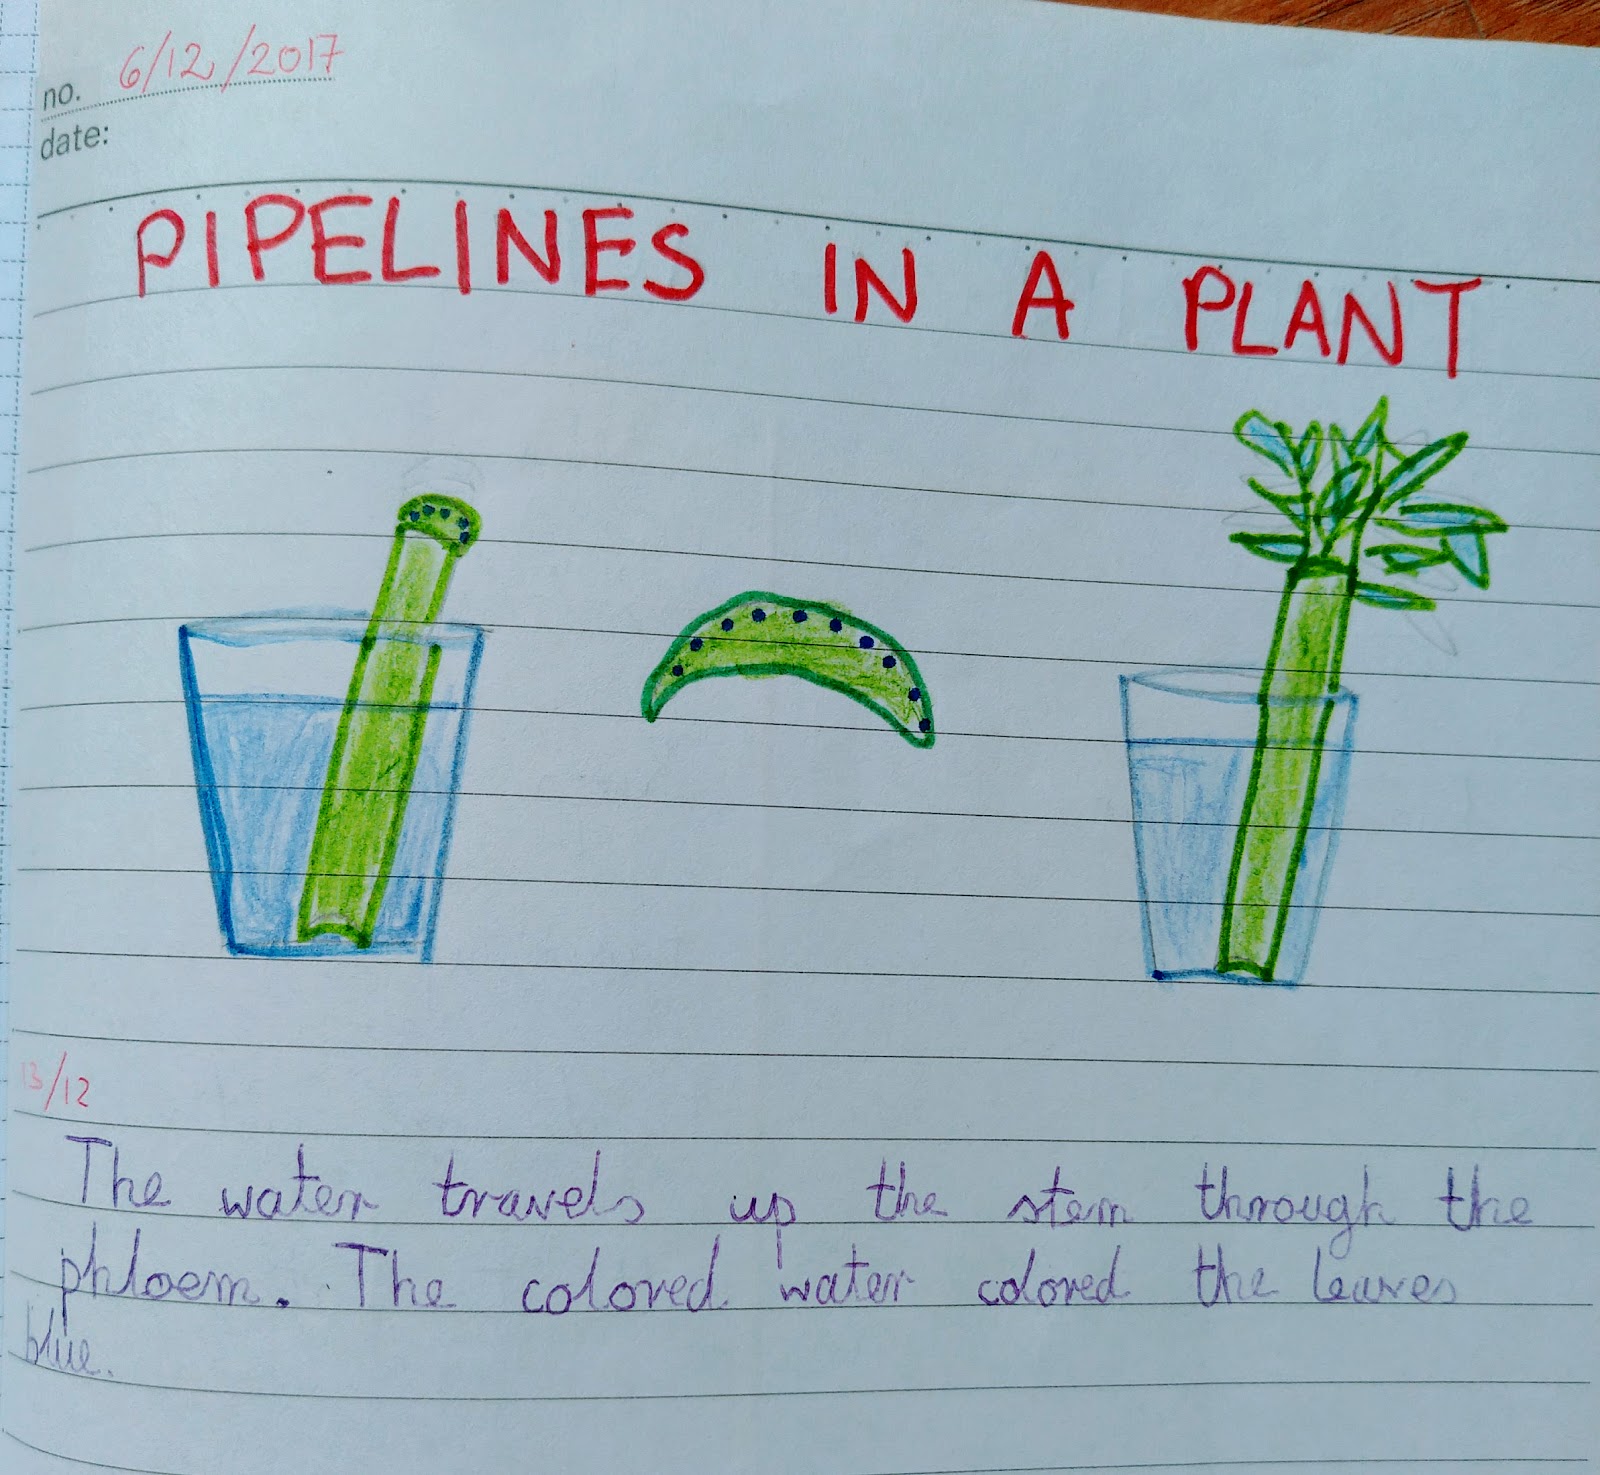 no. 6/12/2017
date:
PIPELINES IN A PLANT
13/12
The water travels up the stem through the
phloem. The colored water colored the leaves
blue.